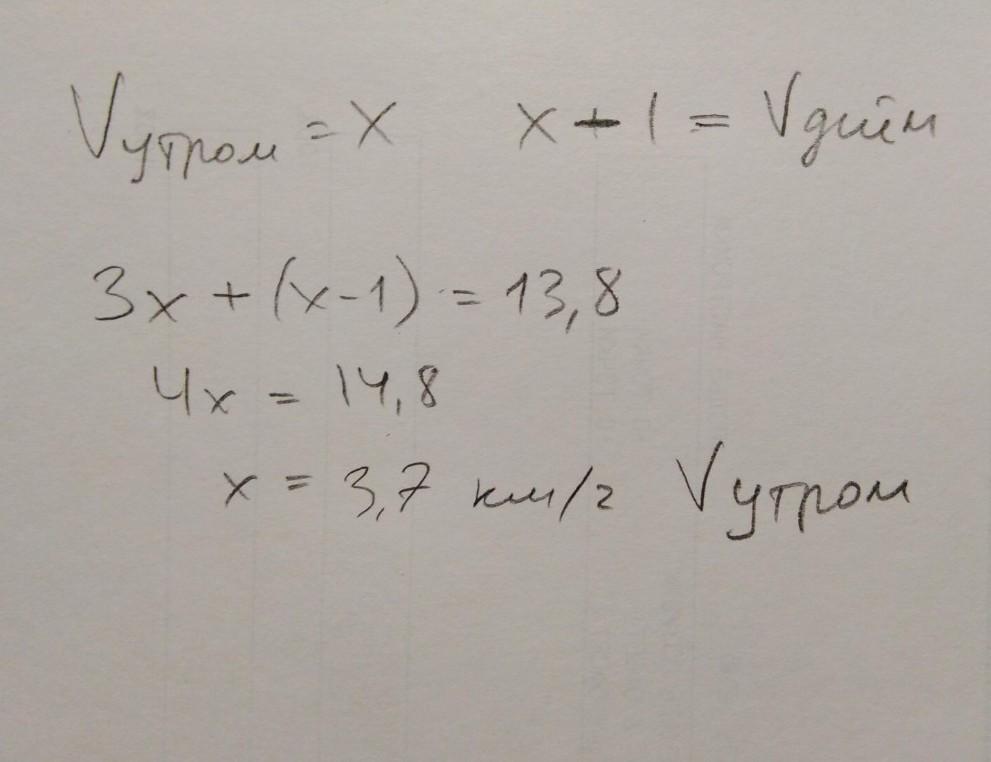 Vутром = x x + 1 = Vднём
3x + (x - 1) = 13,8
4x = 14,8
x = 3,7 км/г Vутром